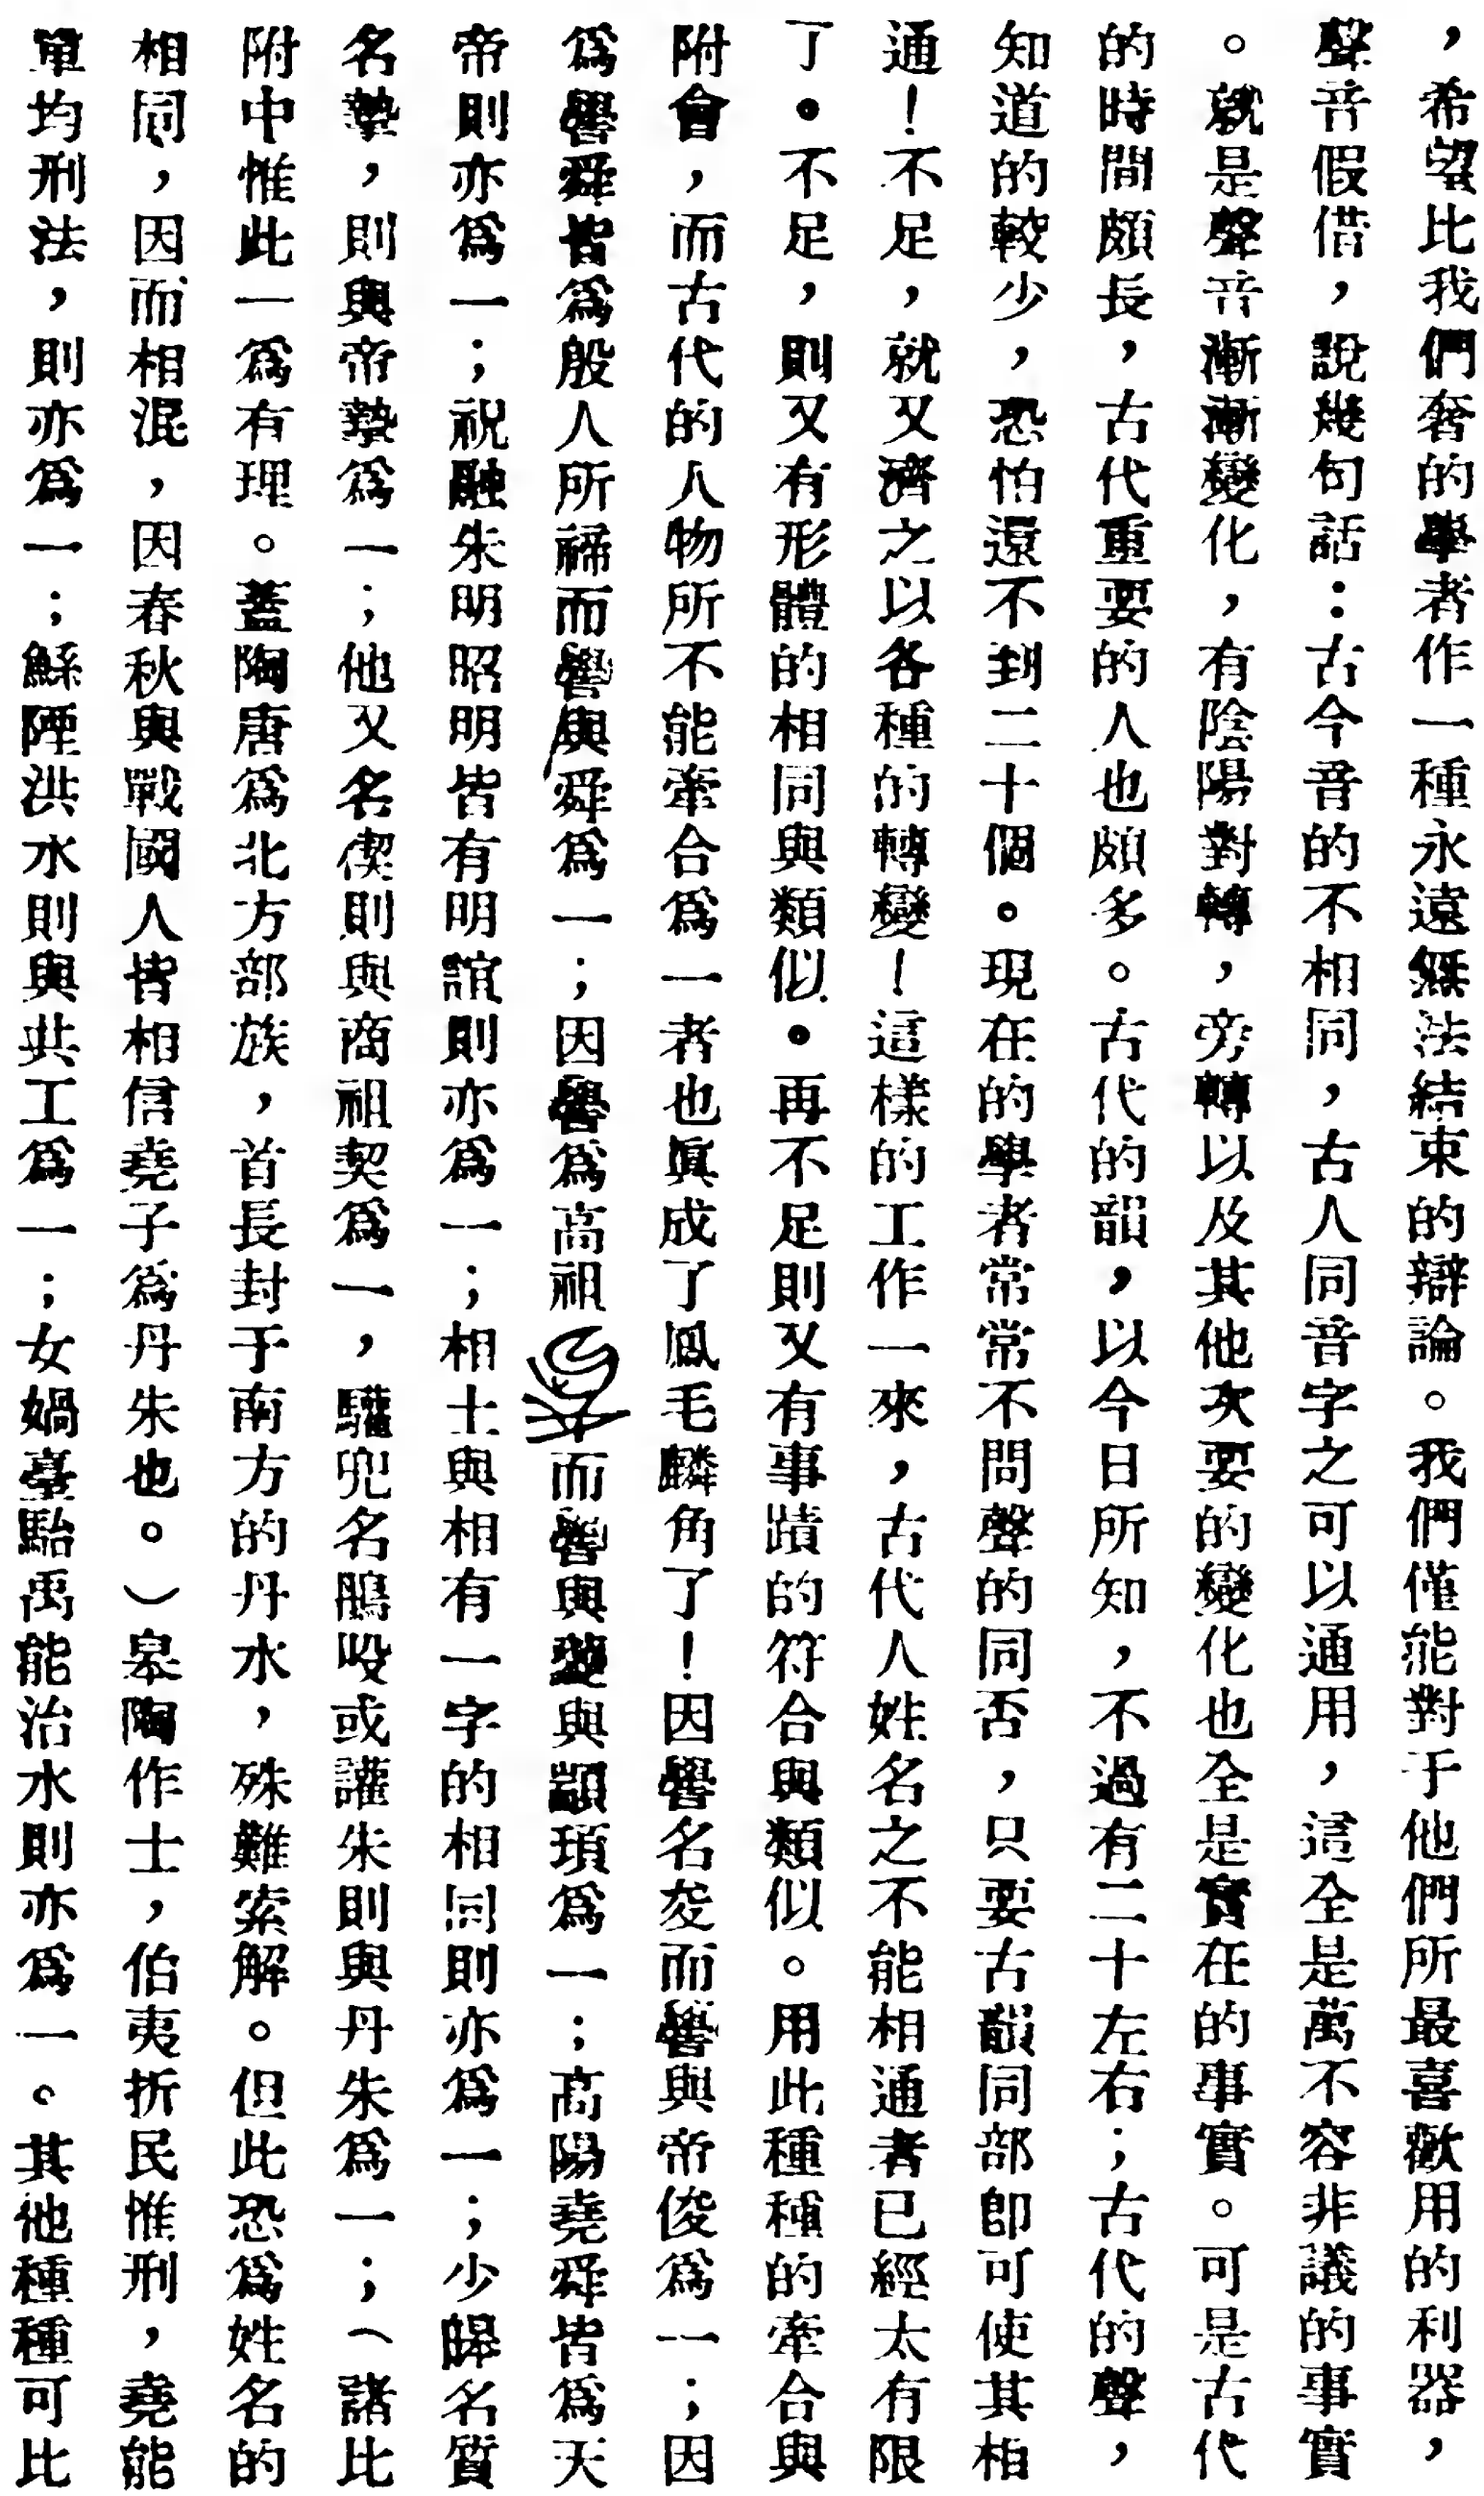 ，希望比我們奢的學者作一種永遠無法結束的辯論。我們僅能對于他們所最喜歡用的利器，
聲音假借，說幾句話：古今音的不相同，古人同音字之可以通用，這全是萬不容非議的事實
。就是聲音漸漸變化，有陰陽對轉，旁轉以及其他次要的變化也全是實在的事實。可是古代
的時間頗長，古代重要的人也頗多。古代的韻，以今日所知，不過有二十左右；古代的聲，
知道的較少，恐怕還不到二十個。現在的學者常常不問聲的同否，只要古韻同部即可使其相
通！不足，就又濟之以各種的轉變！這樣的工作一來，古代人姓名之不能相通者已經太有限
了。不足，則又有形體的相同與類似。再不足則又有事蹟的符合與類似。用此種種的牽合與
附會，而古代的人物所不能牽合為一者也眞成了鳳毛麟角了！因嚳名夋而嚳與帝俊為一；因
為嚳舜皆為殷人所禘而嚳與舜為一；因嚳為高祖而嚳與夔與顓頊為一；高陽堯舜皆為天
帝則亦為一；祝融朱明昭明皆有明誼則亦為一；相土與相有一字的相同則亦為一；少皞名質
名摯，則與帝摯為一；他又名偰則與商祖契為一，驩兜名鴅吺或讙朱則與丹朱為一；（諸比
附中惟此一為有理。蓋陶唐為北方部族，首長封于南方的丹水，殊難索解。但此恐為姓名的
相同，因而相混，因春秋與戰國人皆相信堯子為丹朱也。）皋陶作士，伯夷折民惟刑，堯能
單均刑法，則亦為一；鯀陻洪水則與共工為一；女媧臺駘禹能治水則亦為一。其他種種可比